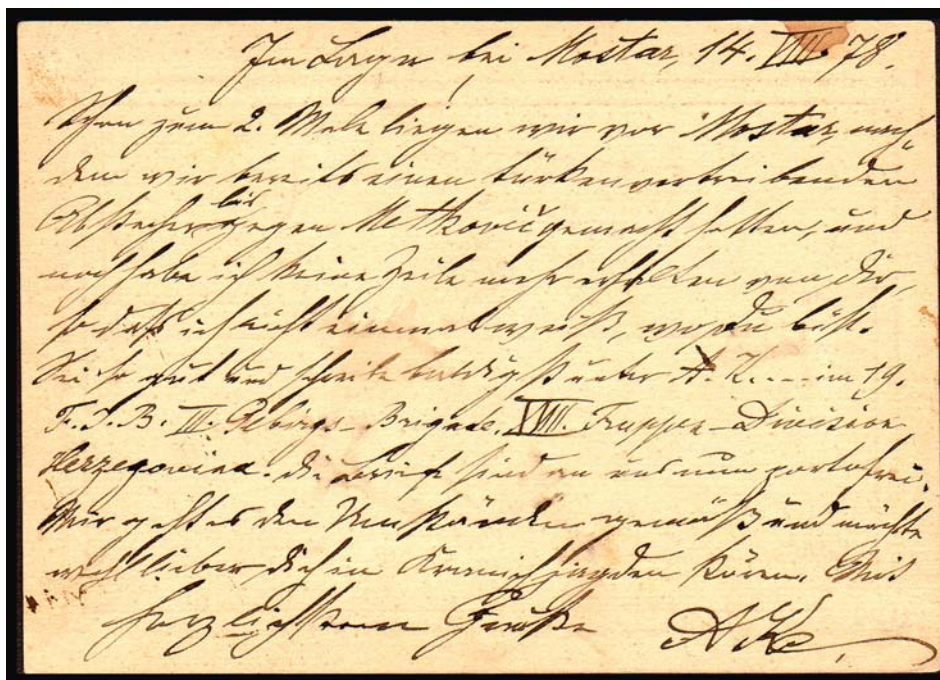 Im Lager bei Mostar, 14. VIII. 78.
Schon zum 2. Male liegen wir vor Mostar, nach-
dem wir bereits einen türkenvertreibenden
Abstecher bis gegen Metković gemacht hatten, und
noch habe ich keine Zeile mehr erhalten von dir,
so daß ich nicht einmal weiß, wo du bist.
Sei so gut und schreibe baldigst unter A. K. --- im 19.
F. J. B. III. Gebirgs-Brigade, XVIII. Truppen-Division
Herzegovina. Die Briefe sind an uns nun portofrei.
Mir geht es den Umständen gemäß und möchte
wohl lieber dich in jagden stören. Mit
herzlichstem Gruße AK